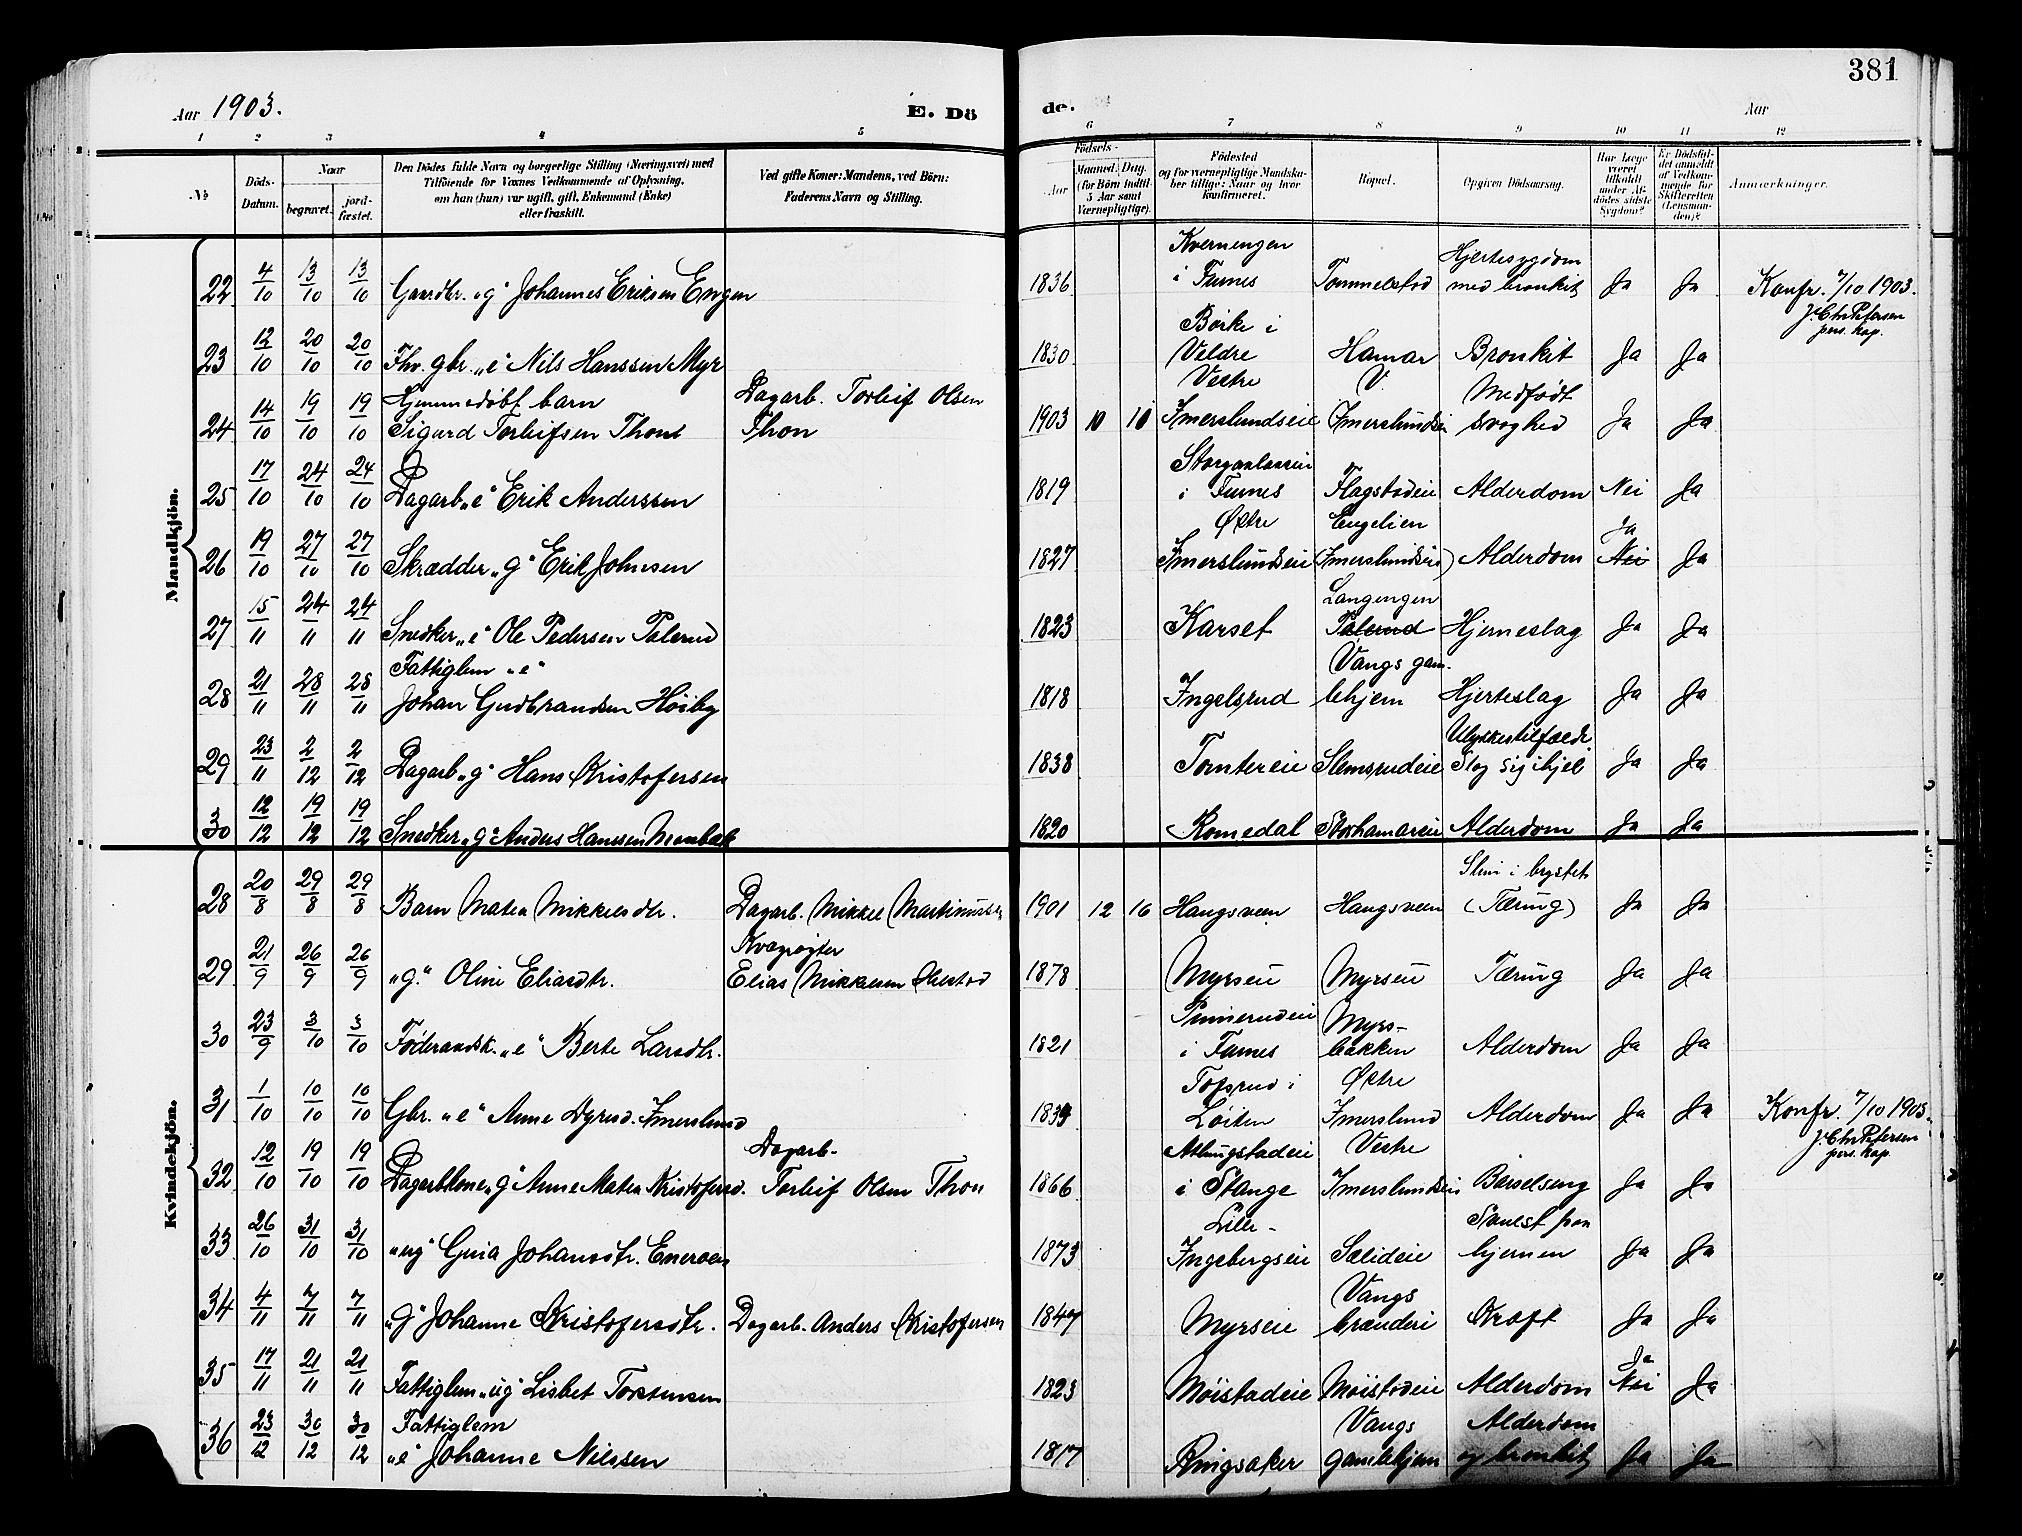 381
Aar 1903.
E. Dö
de.
Aar
1 2 3 4 5 6 7 8 9 10 11 12
No
Döds-
Datum.
Naar
begravet.
jord-
fæstet.
Den Dödes fulde Navn og borgerlige Stilling (Næringsvei) med
Tilföiende for Voxnes Vedkommende af Oplysning,
om han (hun) var ugift, gift, Enkemand (Enke)
eller fraskilt.
Ved gifte Koner: Mandens, ved Börn:
Faderens Navn og Stilling.
Födsels-
Aar
Maaned. Dag.
(for Börn indtil
5 Aar samt
Værnepligtige).
Födested
og for værnepligtige Mandska-
ber tillige: Naar og hvor
konfirmeret.
Bopæl.
Opgiven Dödsaarsag.
Har Læge
været
tilkaldt
under Af-
dödes sidste
Sygdom?
Er Dödsfal-
det anmeldt
af Vedkom-
mende for
Skifteretten
(Lensman-
den)?
Anmærkninger.
Mandkjön.
Kverningen Hjertesygdom
22 4/10 13/10 13/10 Gaardbr. „g“ Johannes Eriksen Engen 1836 i Furnes Tommelstad med bronkit Ja Ja Konfr. 7/10 1903.
J. Chr. Petersen
pers. kap.
Børke i
23 12/10 20/10 20/10 Fhv. gbr. „e“ Nils Hanssen Myr 1830 Veldre Hamar Bronkit Ja Ja
Hjemmedøbt barn Dagarb. Torleif Olsen Vestre V. Medfødt
24 14/10 19/10 19/10 Sigurd Torleifsen Thon Thon 1903 10 10 Imerslundseie Imerslundseie svaghed Ja Ja
25 17/10 24/10 24/10 Dagarb. „e“ Erik Anderssen 1819 i Furnes Flagstadeie Alderdom Nei Ja
Østre Engelien Ja
26 19/10 27/10 27/10 Skrædder „g“ Erik Johnsen 1827 Imerslundseie (Imerslundseie) Alderdom Nei Ja
Langengen
27 15/11 24/11 24/11 Snedker „e“ Ole Pedersen Palerud 1823 Karset Palerud Hjerneslag Ja Ja
Fattiglem „e“ Vangs gam-
28 21/11 28/11 28/11 Johan Gudbrandsen Høiby 1818 Ingelsrud lehjem Hjerteslag Ja Ja
Ulykkestilfælde
29 23/11 2/12 2/12 Dagarb. „g“ Hans Kristofersen 1838 Tomtereie Slemsrudeie Slog sig ihjel Ja Ja
30 12/12 19/12 19/12 Snedker „g“ Anders Hanssen 1820 Romedal Storhamareie Alderdom Ja Ja
Kvindekjön.
Slim i brystet
28 20/8 29/8 29/8 Barn Matea Mikkelsdtr. Dagarb. Mikkel Martinusen 1901 12 16 Hangsveen Hangsveen (Tæring) Ja Ja
Kvægrøgter
29 21/9 26/9 26/9 „g.“ Oline Eliasdtr. Elias Mikkelsen 1878 Myrseie Myrseie Tæring Ja Ja
Pinnerudeie Myrs-
30 23/9 3/10 3/10 Føderaadsk. „e“ Berte Larsdtr. 1821 i Furnes bakken Alderdom Ja Ja
Tofsrud i Østre
31 1/10 10/10 10/10 Gbr. „e“ Anne Dyresd. Imerslund 1834 Løiten Imerslund Alderdom Ja Ja Konfr. 7/10 1903.
J. Chr. Petersen
pers. kap.
Dagarb. Vestre
32 12/10 19/10 19/10 Dagarbkone „g“ Anne Matea Kristofersd. Torleif Olsen Thon 1866 i Stange Imerslundseie Barselseng Ja Ja
Lille-
33 26/10 31/10 31/10 „ug“ Guia Johansdtr. Eneroen 1873 Ingebergseie Sælideie hjernen Ja Ja
Vangs
34 4/11 7/11 7/11 „g“ Johanne Kristofersdtr. Dagarb. Anders Kristofersen 1847 Myrseie brænderi Kræft Ja Ja
Ja
35 17/11 21/11 21/11 Fattiglem „ug“ Lisbet Torstensen 1823 Møistadeie Møistadeie Alderdom Nei Ja
Fattiglem Vangs Alderdom
36 23/12 30/12 30/12 „e“ Johanne Nilssen 1817 Ringsaker gamlehjem og bronkit Ja Ja